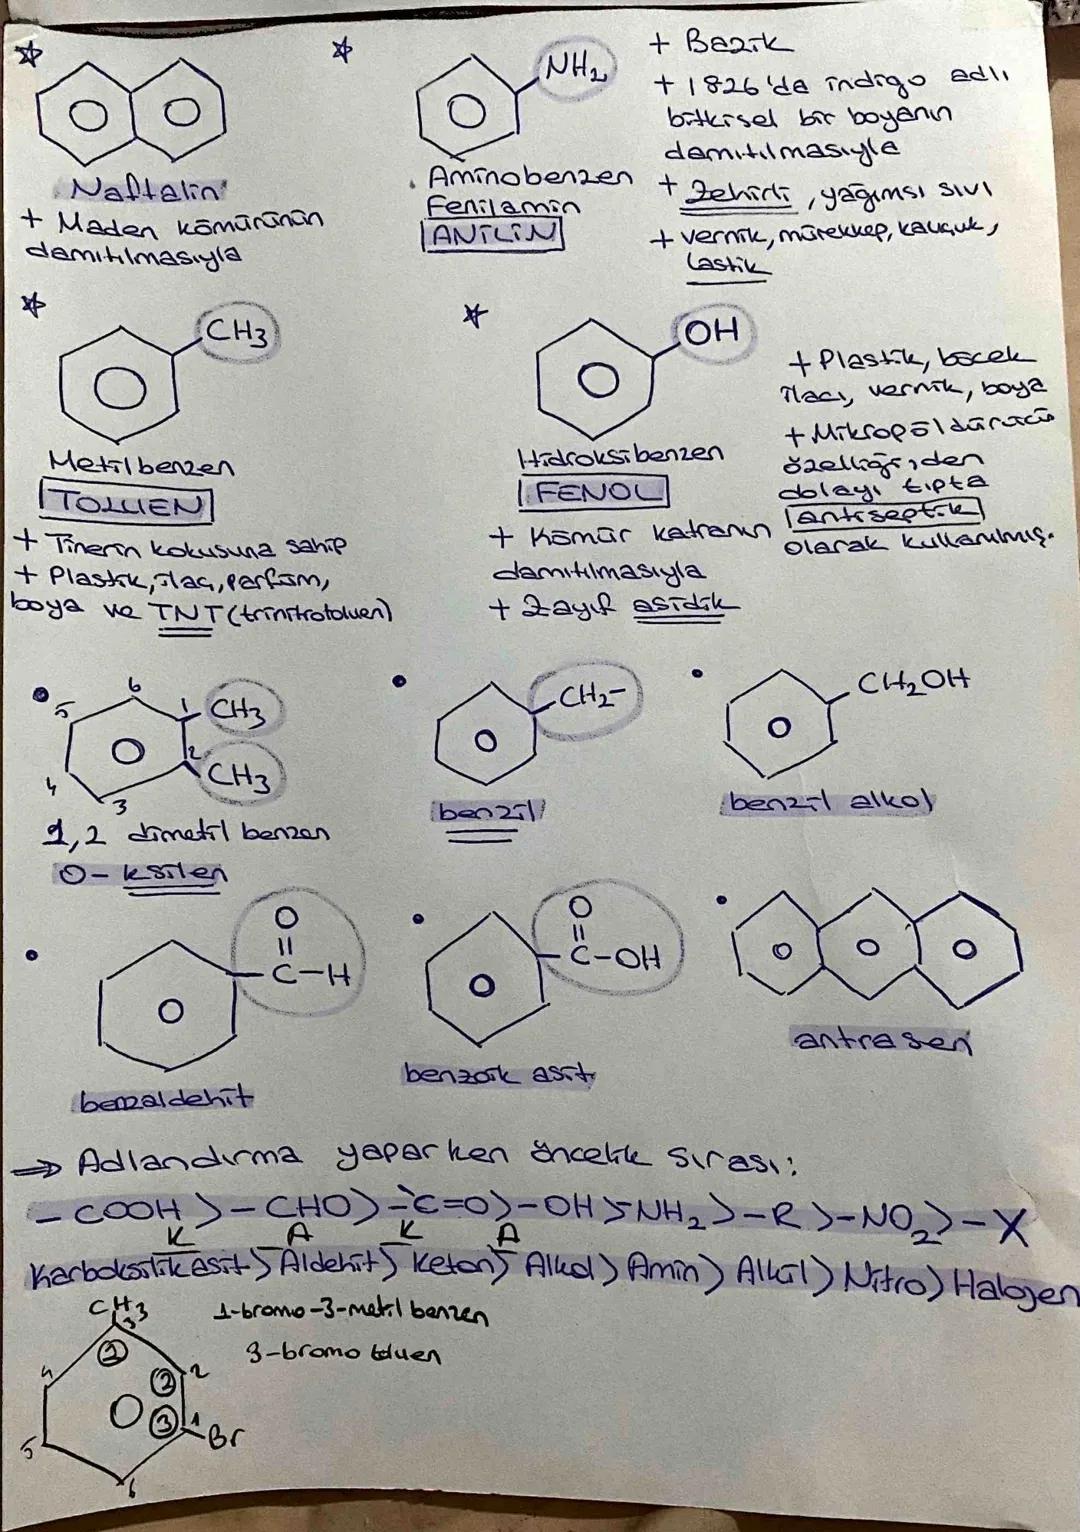 Naftalin
+ Maden kömürünün
damıtılmasıyla
NH2
Aminobenzen
Fenilamin
ANİLİN
+ Bazik
+ 1826'da indigo adlı
bitkisel bir boyanın
damıtılmasıyla
+ Zehirli, yağımsı sıvı
+ vernik, mürekkep, kauçuk,
lastik
CH3
Metilbenzen
TOLUEN
+ Tinerin kokusuna sahip
+ Plastik, ilaç, parfüm,
boya ve TNT (trinitrotoluen)
OH
Hidroksibenzen
FENOL
+ Kömür katranın
damıtılmasıyla
+ Zayıf asidik
+ Plastik, böcek
ilacı, vernik, boya
+ Mikrop öldürücü
özelliğinden
dolayı tıpta
antiseptik
olarak kullanılmış.
6
5 1 CH3
2 CH3
4
3
1,2 dimetil benzen
O- ksilen
CH2-
benzil
CH2OH
benzil alkol
O
C-H
benzaldehit
O
C-OH
benzoik asit
antrasen
⇒ Adlandırma yaparken öncelik sırası:
-COOH > -CHO > -C=O > -OH > -NH2 > -R > -NO2 > -X
K A K A
Karboksilikasit > Aldehit > Keton > Alkol > Amin > Alkil > Nitro > Halojen
CH3 1-bromo-3-metil benzen
3
1 3-bromo toluen
4 2 2
3 1
Br
5
6